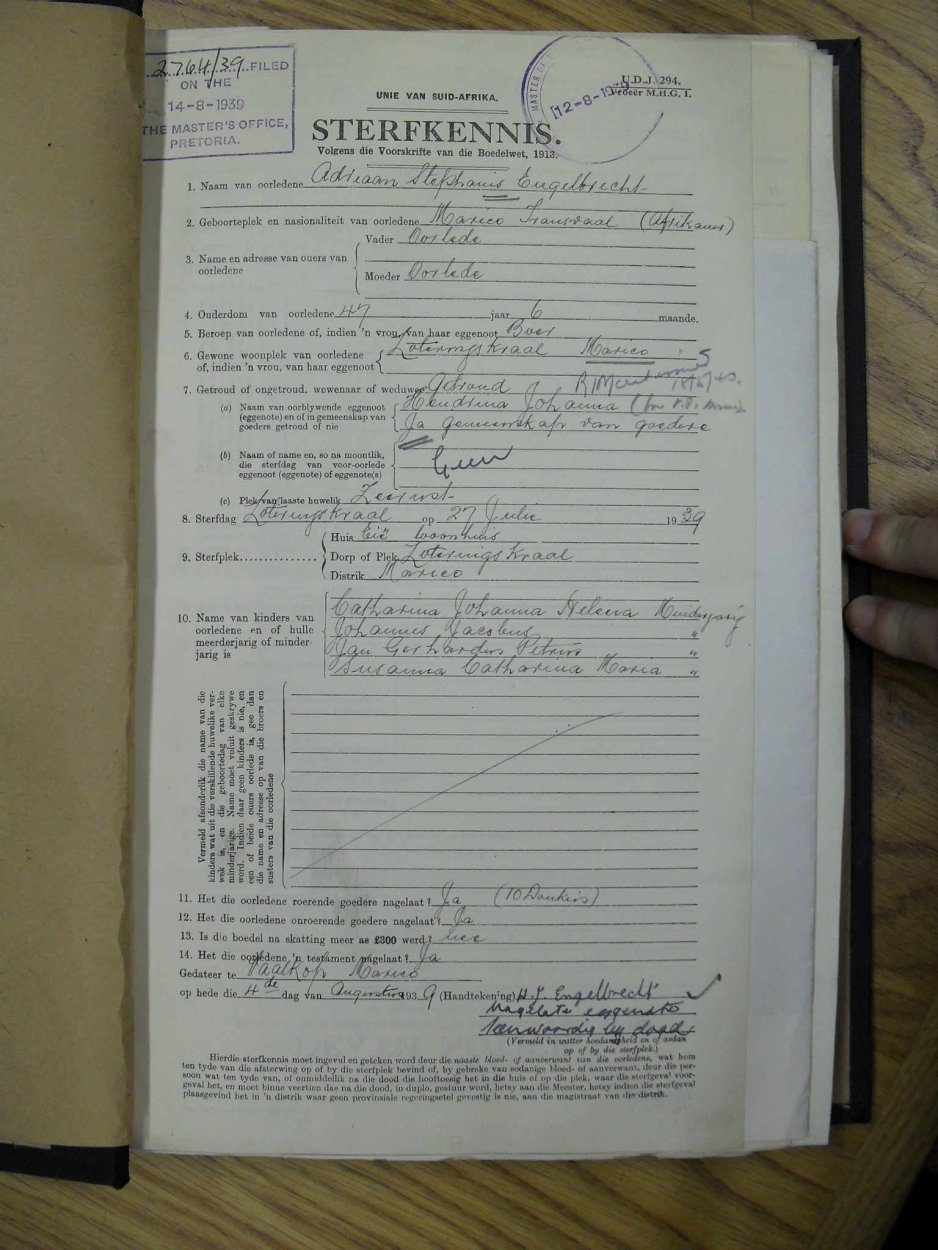 2764/39 FILED
ON THE
14-8-1939
THE MASTER'S OFFICE,
PRETORIA.
MASTER OF
12-8-1939
U.D.J. 294.
Vroeër M.H.G. 1.
UNIE VAN SUID-AFRIKA.
STERFKENNIS.
Volgens die Voorskrifte van die Boedelwet, 1913.
1. Naam van oorledene Adriaan Stephanus Engelbrecht
2. Geboorteplek en nasionaliteit van oorledene Marico Transvaal (Afrikaner)
3. Name en adresse van ouers van oorledene
Vader Oorlede
Moeder Oorlede
4. Ouderdom van oorledene 47 jaar 6 maande.
5. Beroep van oorledene of, indien 'n vrou, van haar eggenoot Boer
6. Gewone woonplek van oorledene of, indien 'n vrou, van haar eggenoot Loteringskraal Marico
7. Getroud of ongetroud, wewenaar of weduwee Getroud
(a) Naam van oorblywende eggenoot (eggenote) en of in gemeenskap van goedere getroud of nie
Hendrina Johanna
Ja gemeenskap van goedere
(b) Naam of name en, so na moontlik, die sterfdag van voor-oorlede eggenoot (eggenote) of eggenote(s) Geen
(c) Plek van laaste huwelik Zeerust
8. Sterfdag Loteringskraal op 27 Julie 1939
9. Sterfplek
Huis Eie woonhuis
Dorp of Plek Loteringskraal
Distrik Marico
10. Name van kinders van oorledene en of hulle meerderjarig of minderjarig is
Catharina Johanna Helena Minderjarig
Johannes Jacobus "
Jan Gerhardus Petrus "
Susanna Catharina Maria "
Vermeld afsonderlik die name van die
kinders wat uit die verskillende huwelike ver-
wek is, en die geboortedag van elke
minderjarige. Name moet voluit geskrywe
word. Indien daar geen kinders is nie, en
een of beide ouers oorlede is, gee dan
die name en adresse op van die broers en
susters van die oorledene
11. Het die oorledene roerende goedere nagelaat? Ja (10 Donkies)
12. Het die oorledene onroerende goedere nagelaat? Ja
13. Is die boedel na skatting meer as £300 werd? nee
14. Het die oorledene 'n testament nagelaat? Ja
Gedateer te Vaalkop Marico
op hede die 4de dag van Augustus 1939 (Handtekening) H. J. Engelbrecht
Nagelate eggenote
Teenwoordig by dood
(Vermeld in watter hoedanigheid en of aldan
op of by die sterfplek.)
Hierdie sterfkennis moet ingevul en geteken word deur die naaste bloed- of aanverwant van die oorledene, wat hom
ten tyde van die afsterwing op of by die sterfplek bevind of, by gebreke van sodanige bloed- of aanverwant, deur die per-
soon wat ten tyde van, of onmiddellik na die dood die hooftoesig het in die huis of op die plek, waar die sterfgeval voor-
geval het, en moet binne veertien dae na die dood, in duplo, gestuur word, hetsy aan die Meester, hetsy indien die sterfgeval
plaasgevind het in 'n distrik waar geen provinsiale regeringsetel gevestig is nie, aan die magistraat van die distrik.